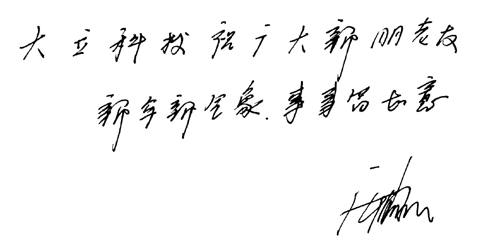 大立科技祝广大新朋老友
新年新气象.事事皆如意